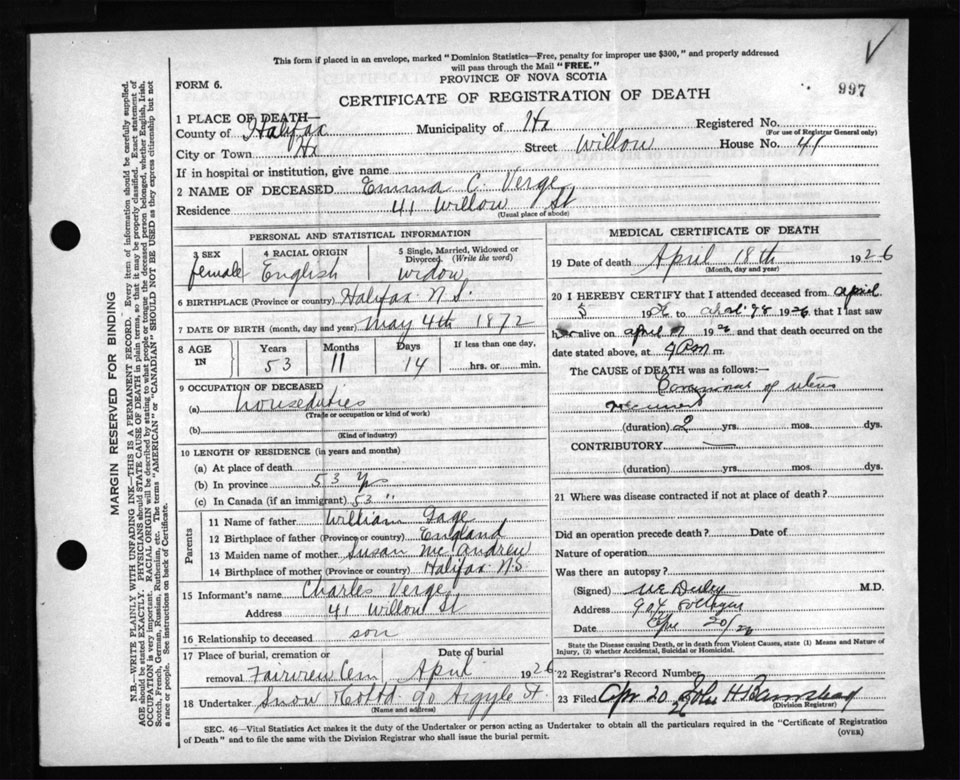 This form if placed in an envelope, marked "Dominion Statistics—Free, penalty for improper use $300," and properly addressed
will pass through the Mail "FREE."
PROVINCE OF NOVA SCOTIA
FORM 6.
997
CERTIFICATE OF REGISTRATION OF DEATH
1 PLACE OF DEATH—
County of Halifax Municipality of Hx Registered No.
(For use of Registrar General only)
City or Town Hx Street Willow House No. 41
If in hospital or institution, give name
2 NAME OF DECEASED Emma C. Verge
Residence 41 Willow St
(Usual place of abode)
PERSONAL AND STATISTICAL INFORMATION
3 SEX female
4 RACIAL ORIGIN English
5 Single, Married, Widowed or Divorced (Write the word) widow
6 BIRTHPLACE (Province or country) Halifax N.S.
7 DATE OF BIRTH (month, day and year) May 4th 1872
8 AGE IN Years 53 Months 11 Days 14 If less than one day, ......hrs. or......min.
9 OCCUPATION OF DECEASED
(a) houseduties
(Trade or occupation or kind of work)
(b)
(Kind of industry)
10 LENGTH OF RESIDENCE (in years and months)
(a) At place of death
(b) In province 53 Yrs
(c) In Canada (if an immigrant) 53 "
Parents
11 Name of father William Gage
12 Birthplace of father (Province or country) England
13 Maiden name of mother Susan McAndrew
14 Birthplace of mother (Province or country) Halifax N.S.
15 Informant's name Charles Verge
Address 41 Willow St
16 Relationship to deceased son
17 Place of burial, cremation or removal Fairview Cem Date of burial April 1926
18 Undertaker Snow & Co Ltd 90 Argyle St.
(Name and address)
MEDICAL CERTIFICATE OF DEATH
19 Date of death April 18th 1926
(Month, day and year)
20 I HEREBY CERTIFY that I attended deceased from April
1926 to 1926 that I last saw
her alive on April 1926 and that death occurred on
date stated above, at 9 PM m.
The CAUSE of DEATH was as follows:—
of uterus
(duration) 2 yrs. mos. dys.
CONTRIBUTORY —
(duration) yrs. mos. dys.
21 Where was disease contracted if not at place of death?
Did an operation precede death? Date of
Nature of operation
Was there an autopsy?
(Signed) M.D.
Address
Date Apr 20/26
State the Disease causing Death, or in death from Violent Causes, state (1) Means and Nature of
Injury, (2) whether Accidental, Suicidal or Homicidal.
22 Registrar's Record Number
23 Filed Apr. 20 26 John H Barnstead
(Division Registrar)
SEC. 46—Vital Statistics Act makes it the duty of the Undertaker or person acting as Undertaker to obtain all the particulars required in the "Certificate of Registration
of Death" and to file the same with the Division Registrar who shall issue the burial permit.
(OVER)
MARGIN RESERVED FOR BINDING
N.B.—WRITE PLAINLY WITH UNFADING INK—THIS IS A PERMANENT RECORD. Every item of information should be carefully supplied.
AGE should be stated EXACTLY. PHYSICIANS should STATE CAUSE OF DEATH in plain terms, so that it may be properly classified. Exact statement of
OCCUPATION is very important. RACIAL ORIGIN will be described by stating to what people or tongue the deceased person belonged, whether English, Irish,
Scotch, French, German, Russian, Ruthenian, etc. The terms "AMERICAN" or "CANADIAN" SHOULD NOT BE USED as they express citizenship but not
a race or people. See instructions on back of Certificate.